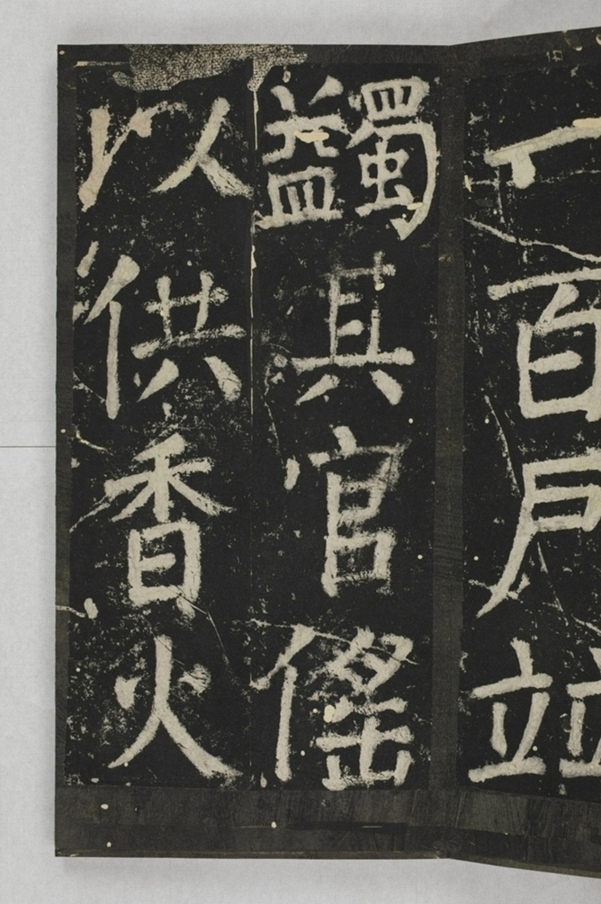 一百戶竝
蠲其官傜
以供香火